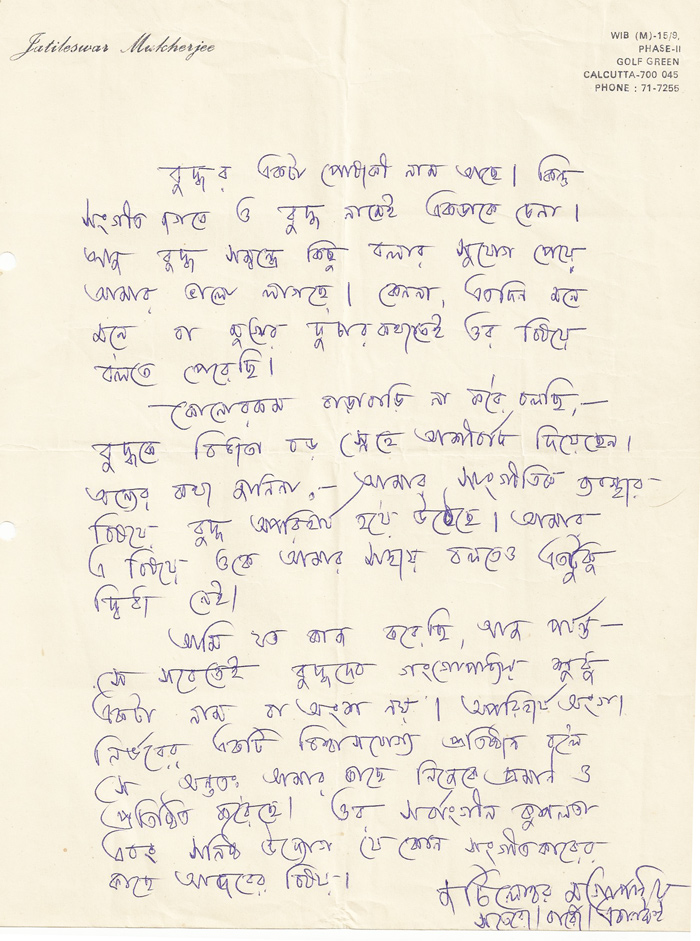 Jatileswar Mukherjee
WIB (M)-15/8,
PHASE-II
GOLF GREEN
CALCUTTA-700 045
PHONE : 71-7255
বুদ্ধর একটা পোষাকী নাম আছে। কিন্তু
সংগীত জগতে ও বুদ্ধ নামেই একডাকে চেনা।
আজ বুদ্ধ সম্বন্ধে কিছু বলার সুযোগ পেয়ে
আমার ভালো লাগছে। কেননা, এতদিন মনে
মনে বা মুখের দুচার কথাতেই ওর বিষয়ে
বলতে পেরেছি।
কোনোরকম বাড়াবাড়ি না করে বলছি,—
বুদ্ধকে বিধাতা বড় স্নেহে আশীর্বাদ দিয়েছেন।
অন্যের কথা জানিনা,— আমার সংগীতিক ব্যবস্থার
বিষয়ে বুদ্ধ অপরিহার্য হয়ে উঠেছে। আমার
এ বিষয়ে ওকে আমার সহায় বলতেও এতটুকু
দ্বিধা নেই।
আমি যত কাজ করেছি, আজ পর্যন্ত—
সে সবেতেই বুদ্ধদেব গংগোপাধ্যায় শুধু
একটা নাম বা অংশ নয়। অপরিহার্য অংগ।
নির্ভরের একটি বিশ্বাসযোগ্য প্রতিষ্ঠান বলে
সে অন্ততঃ আমার কাছে নিজেকে প্রমান ও
প্রতিষ্ঠিত করেছে। ওর সর্বাংগীন কুশলতা
এবং উদ্যোগ যে কোন সংগীতকারের
কাছে আদরের বিষয়।
জটিলেশ্বর মুখোপাধ্যায়